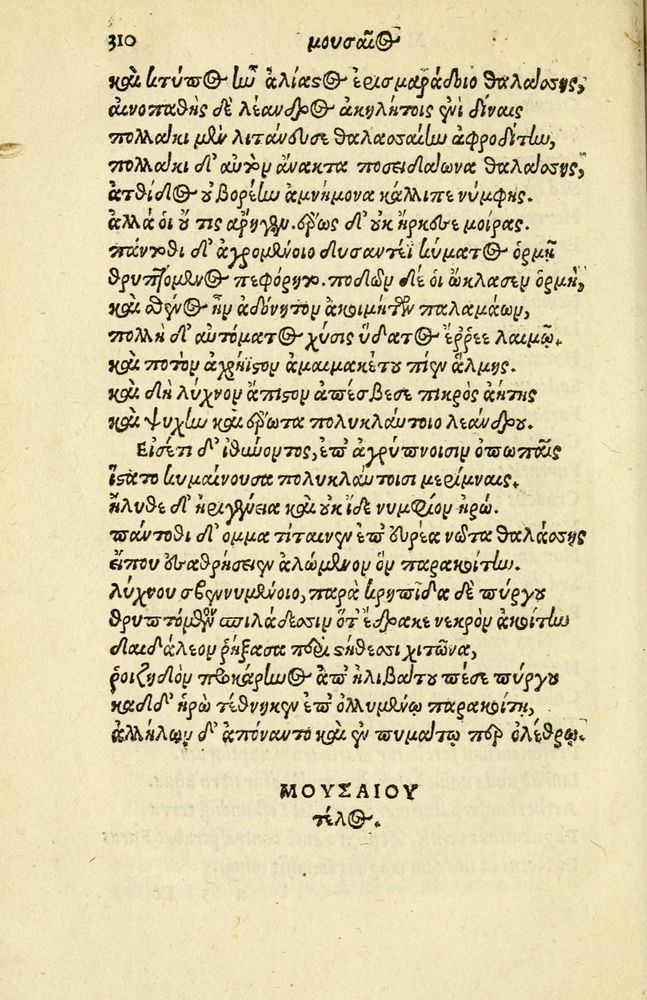 310 μουσαῖος
καὶ κτύπος ἦν ἁλίαστος ἐρισμαράδοιο θαλάσσης,
αἰνοπαθὴς δὲ λέανδρος ἀκηλήτοις ἐνὶ δίναις
πολλάκι μὲν λιτάνευσε θαλασσαίην ἀφροδίτην,
πολλάκι δ' αὐτὸν ἄνακτα ποσειδάωνα θαλάσσης,
ἀτθίδος οὐ βορέην ἀμνήμονα κάλλιπε νύμφης.
ἀλλά οἱ οὔ τις ἄρηγεν. ἔρως δ' οὐκ ἤρκεσε μοίρας.
πάντοθι δ' ἀγρομένοιο δυσαντέϊ κύματος ὁρμῇ
θρυπτόμενος πεφόρητο. ποδῶν δέ οἱ ὤκλασεν ὁρμή,
καὶ σθένος ἦν ἀδόνητον ἀκοιμήτων παλαμάων,
πολλὴ δ' αὐτόματος χύσις ὕδατος ἔῤῥεε λαιμῷ.
καὶ ποτὸν ἀχρήϊστον ἀμαιμακέτου πίεν ἅλμης.
καὶ δὴ λύχνον ἄπιστον ἀπέσβεσε πικρὸς ἀήτης
καὶ ψυχὴν καὶ ἔρωτα πολυκλαύτοιο λεάνδρου.
Εἰσέτι δ' ἰθύνοντος, ἐπ' ἀγρύπνοισιν ὀπωπαῖς
ἵστατο κυμαίνουσα πολυκλαύτοισι μερίμναις.
ἤλυθε δ' ἠριγένεια καὶ οὐκ ἴδε νυμφίον ἡρώ.
πάντοθι δ' ὄμμα τίταινεν ἐπ' εὐρέα νῶτα θαλάσσης
εἴπου ἐσαθρήσειεν ἀλώμενον ὃν παρακοίτην.
λύχνου σβεννυμένοιο, παρὰ κρηπῖδα δὲ πύργου
θρυπτόμενον σπιλάδεσσιν ὅτ' ἔδρακε νεκρὸν ἀκοίτην
δαιδάλεον ῥήξασα περὶ στήθεσσι χιτῶνα,
ῥοιζηδὸν προκάρηνος ἀπ' ἠλιβάτου πέσε πύργου
καδδ' ἡρὼ τέθνηκεν ἐπ' ὀλλυμένῳ παρακοίτῃ,
ἀλλήλων δ' ἀπόναντο καὶ ἐν πυμάτῳ περ ὀλέθρῳ.
ΜΟΥΣΑΙΟΥ
τέλος.